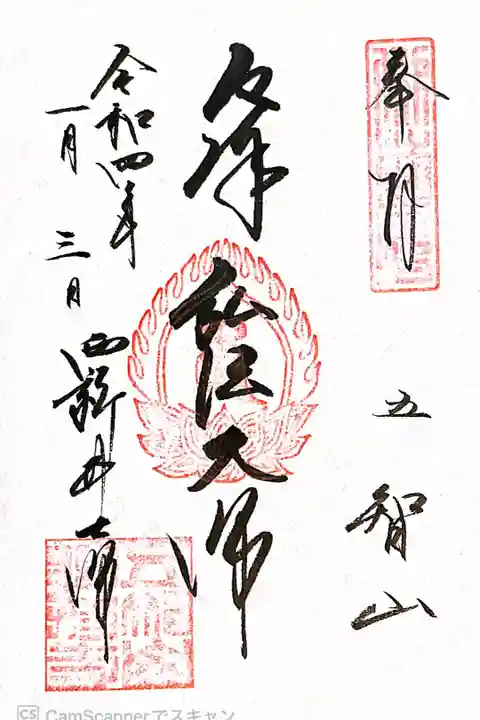 奉拝
五智山
弘法大師
令和四年
一月三日
西新井大師
CamScannerでスキャン